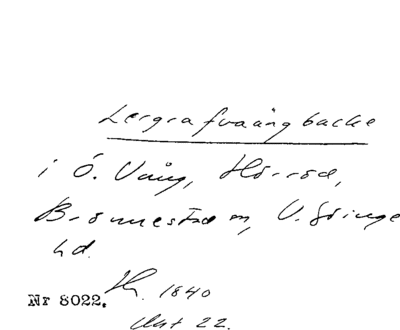 Lergrafvaängbacke
i Ö. Vång, Hörröd,
Brönnestad sn, V. Göinge
hd.
Nr 8022. Sk. 1840
Akt 22.